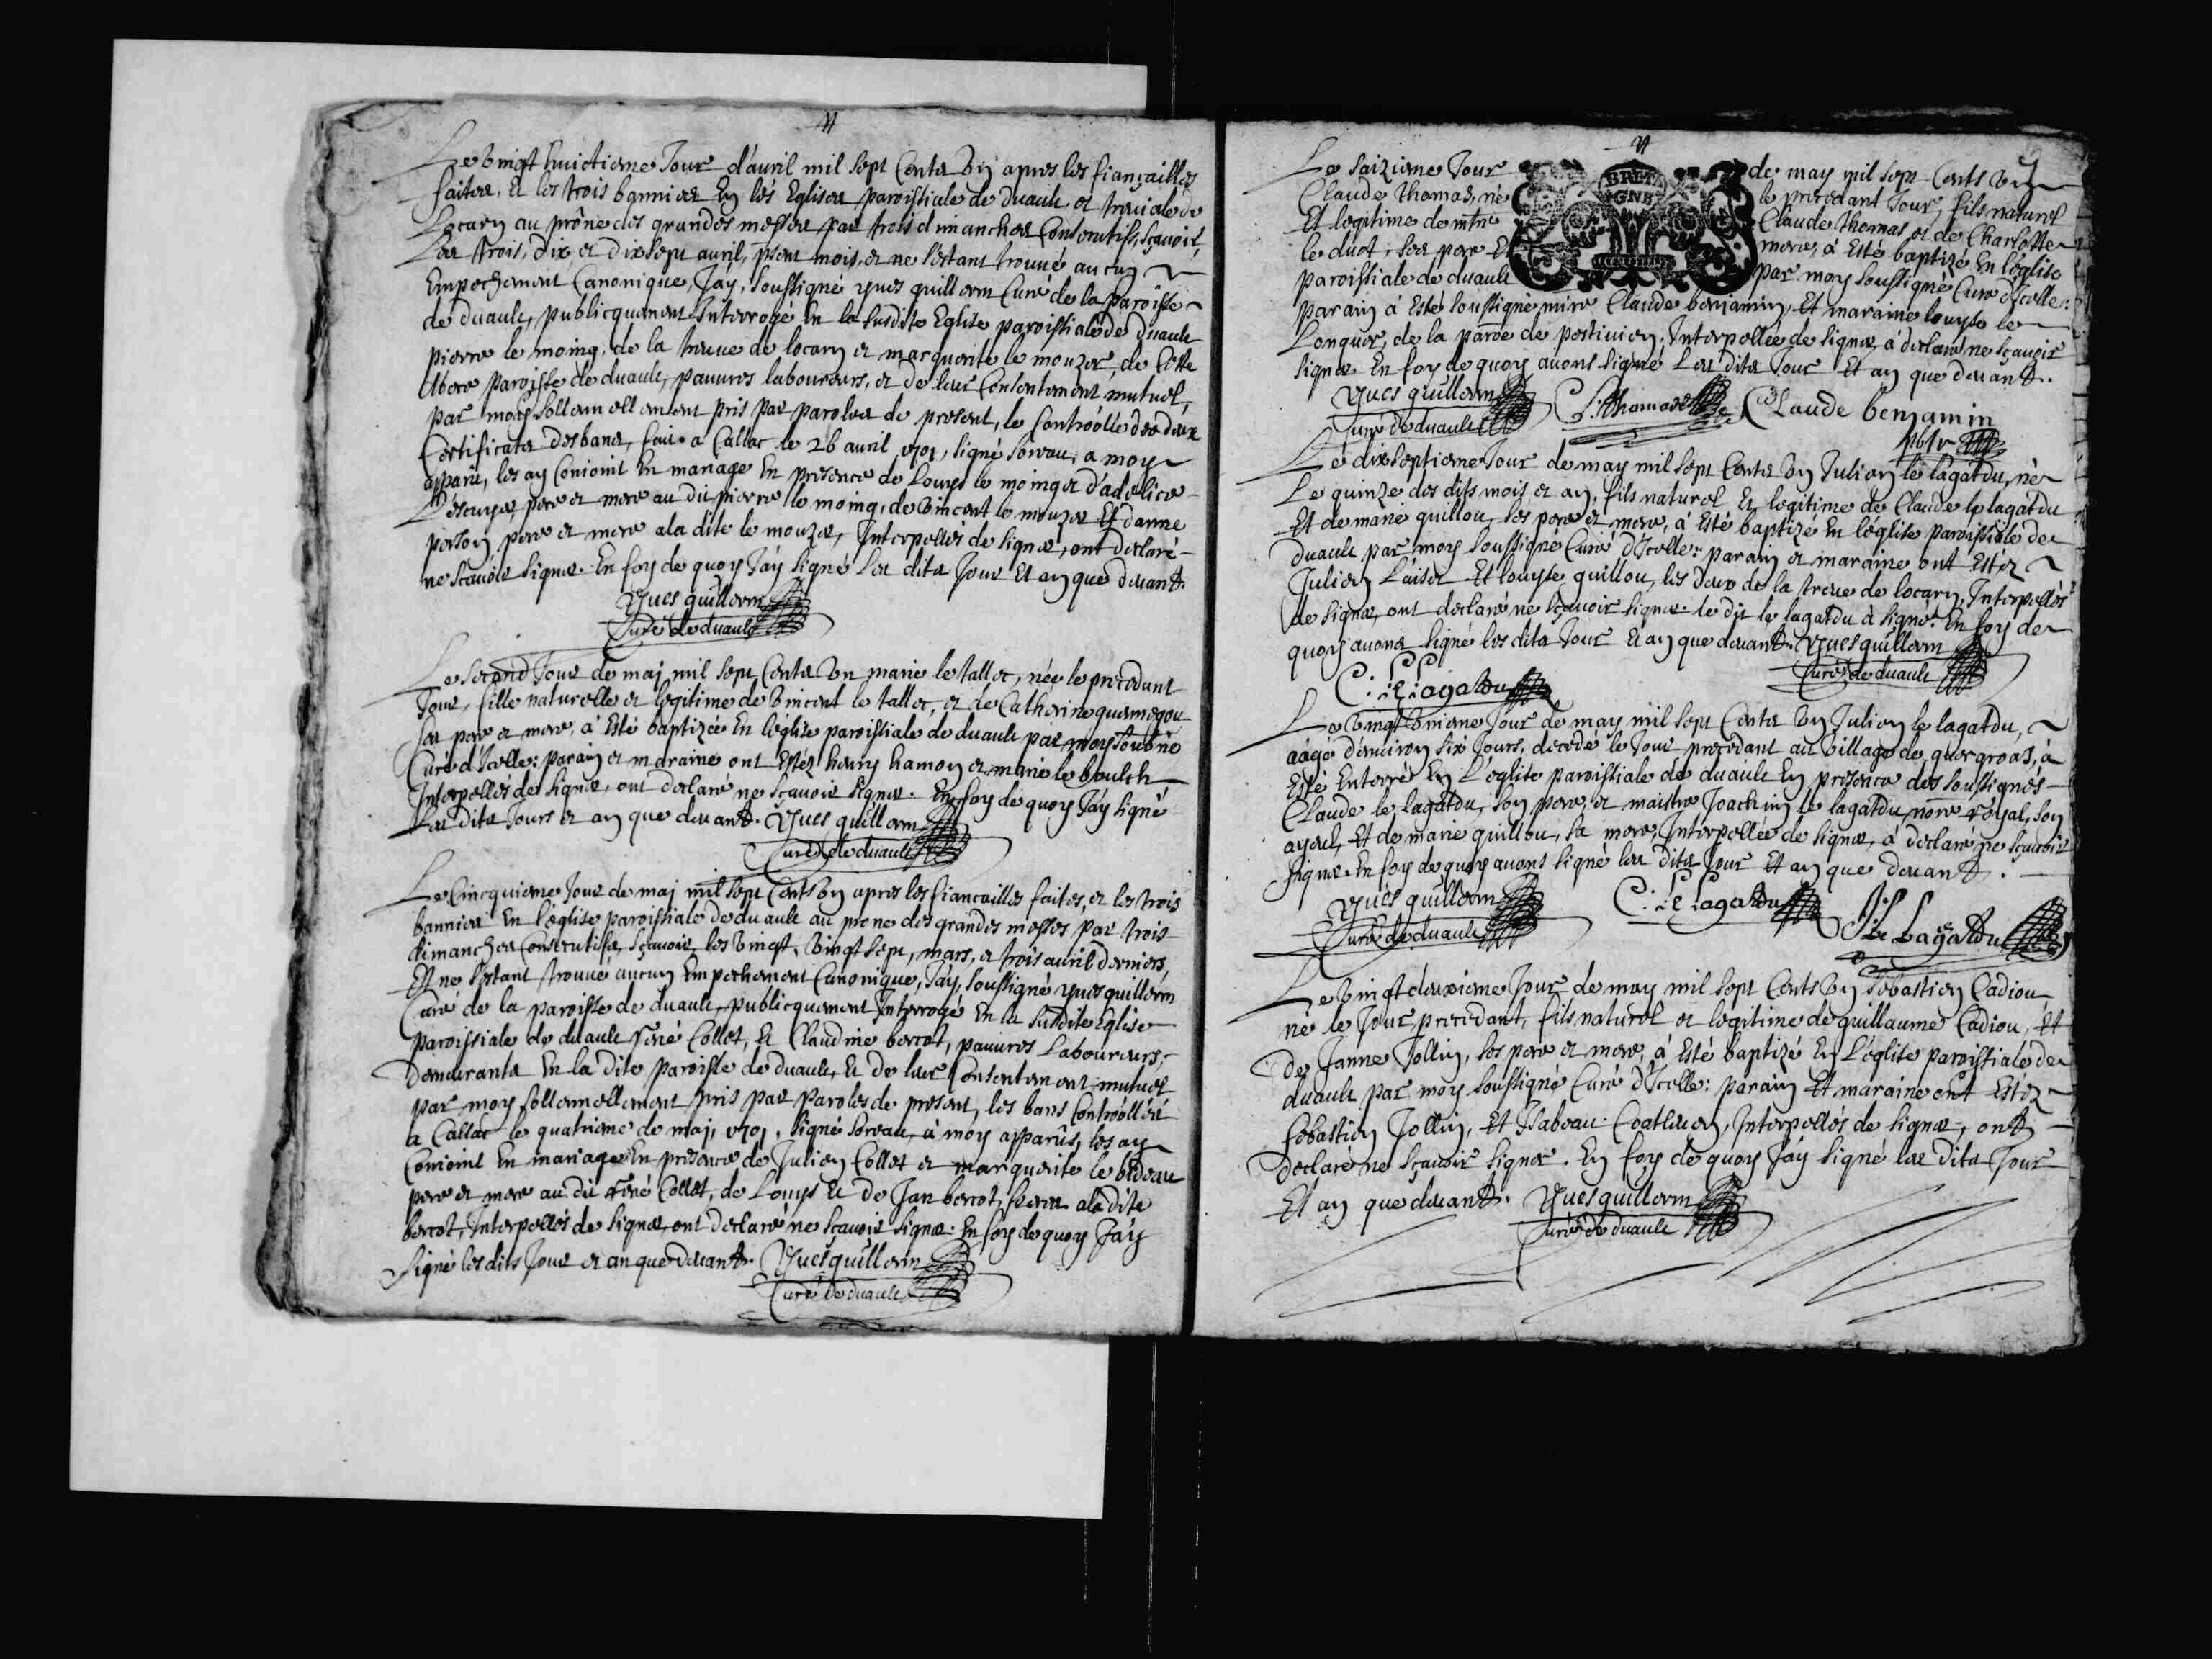 Le vingt huictieme Jour d'avril mil sept Cents Un apres les fiançailles
faites, Et les trois bannies En les Eglises paroissiale de duault, et treviale de
Locarn au prône des grandes messes par trois dimanches Consecutifs, sçavoir,
Les trois, dix et dixsept avril, pnt mois, et ne s'estant trouvé aucun
Empechement Canonique, J'ay, soussigné yves guillerm Curé de la paroisse
de duault, publicquement Interrogé En la susdite Eglise paroissiale de duault
pierre le moing, de la treve de locarn et marguerite le mouzer, de Cette
paroisse de duault, pauvres laboureurs, et de leur Consentement mutuel,
par moy sollemnellement pris par paroles de present, le Controolle des deux
Certificats des bans, fait a Callac le 26 avril 1701, signé Loreau, a moy
apparu, les ay Conioint En mariage En presence de Louys le moing et d'adelice
pere et mere au dit pierre le moing, de vincent le mouzer Et danne
person, pere et mere a la dite le mouzer, Interpellés de signer, ont declaré
ne sçavoir signer. En foy de quoy J'ay signé Les dits Jour Et an que devant.
Yves guillerm
Curé de duault
Le second Jour de maj mil sept Cents Un marie le tallec, née le precedant
Jour, fille naturelle et legitime de vincent le tallec, et de Catherine
ses pere et mere, à Esté baptizée En l'eglise paroissiale de duault par moy soubné
Curé d'Icelle: parain et maraine ont Estéz henry hamon et marie le boulch
Interpellés de signer, ont declaré ne sçavoir signer. En foy de quoy J'ay signé
Les dits Jours et an que devant. Yves guillerm
Curé de duault
Le Cincquieme Jour de maj mil sept Cents Un apres les fiancailles faites, et les trois
bannies En l'eglise paroissiale de duault au prone des grandes messes par trois
dimanches Consecutifs, sçavoir, les vingt, vingt sept, mars, et trois avril derniers,
Et ne s'estant trouvé aucun Empechement Canonique, J'ay, soussigné yves guillerm
Curé de la paroisse de duault, publicquement Interrogé En la susdite Eglise
paroissiale de duault René Collet, Et Claudine bercot, pauvres Laboureurs,
Demeurants En la dite paroisse de duault, Et de leur Consentement mutuel
par moy sollemnellement pris par Paroles de present, les bans Controollés
a Callac le quatrieme de maj, 1701, signé Loreau, à moy apparus, les ay
Conioint En mariage En presence de Julien Collet et marguerite le bideau
pere et mere au dit René Collet, de Louys Et de Jan bercot, freres a la dite
bercot, Interpellés de signer, ont declaré ne sçavoir signer. En foy de quoy J'ay
signé les dits Jour et an que devant. Yves guillerm
Curé de duault
BRETAGNE
Le saizieme Jour de may mil sept Cents Un
Claude thomas, né le precedant Jour, fils naturel
Et legitime de mtre Claude thomas et de Charlotte
le duot, ses pere Et mere, à Esté baptizé En l'eglise
paroissiale de duault par moy soussigné Curé d'Icelle:
parain à Esté soussigné mire Claude benjamin, Et maraine louyse le
Lonquer, de la paroe de pestivien, Interpellée de signer, à declaré ne sçavoir
signer. En foy de quoy avons signé Les dits Jour Et an que devant.
Yves guillerm C: thomas Claude benjamin
Curé de duault pbtre
Le dixseptieme Jour de may mil sept Cents Un Julien le lagatdu, né
Le quinze des dits mois, et an, fils naturel Et legitime de Claude le lagatdu
Et de marie guillou, ses pere et mere, à Esté baptizé En l'eglise paroissiale de
duault par moy soussigné Curé d'Icelle: parain et maraine ont Estéz
Julien L'aisor Et louyse guillou, les deux de la treve de locarn, Interpellés
de signer, ont declaré ne sçavoir signer. le dit le lagatdu à signé. En foy de
quoy avons signé les dits Jour Et an que devant. Yves guillerm
C: Le Lagatdu Curé de duault
Le vingt Unieme Jour de may mil sept Cents Un Julien le lagatdu,
aagé d'environ six Jours, decedé le Jour precedant au village de guergroas, à
Esté Enterré En L'eglise paroissiale de duault En presence des soussignés
Claude le lagatdu, son pere, et maistre Joachim le lagatdu, nore royal, son
ayeul, Et de marie guillou, sa mere, Interpellée de signer, à declaré ne sçavoir
signer. En foy de quoy avons signé les dits Jour Et an que devant.
Yves guillerm C: Le Lagatdu J: Le Lagatdu
Curé de duault
Le vingt deuxieme Jour de may mil sept Cents Un sebastien Cadiou
né le Jour precedant, fils naturel et legitime de guillaume Cadiou, Et
de Janne Jollin, ses pere et mere, à Esté baptizé En L'eglise paroissiale de
duault par moy soussigné Curé d'Icelle: parain Et maraine ont Estéz
sebastien Jollin, Et Isabeau Coatleven, Interpellés de signer, ont
declaré ne sçavoir signer. En foy de quoy J'ay signé les dits Jour
Et an que devant. Yves guillerm
Curé de duault